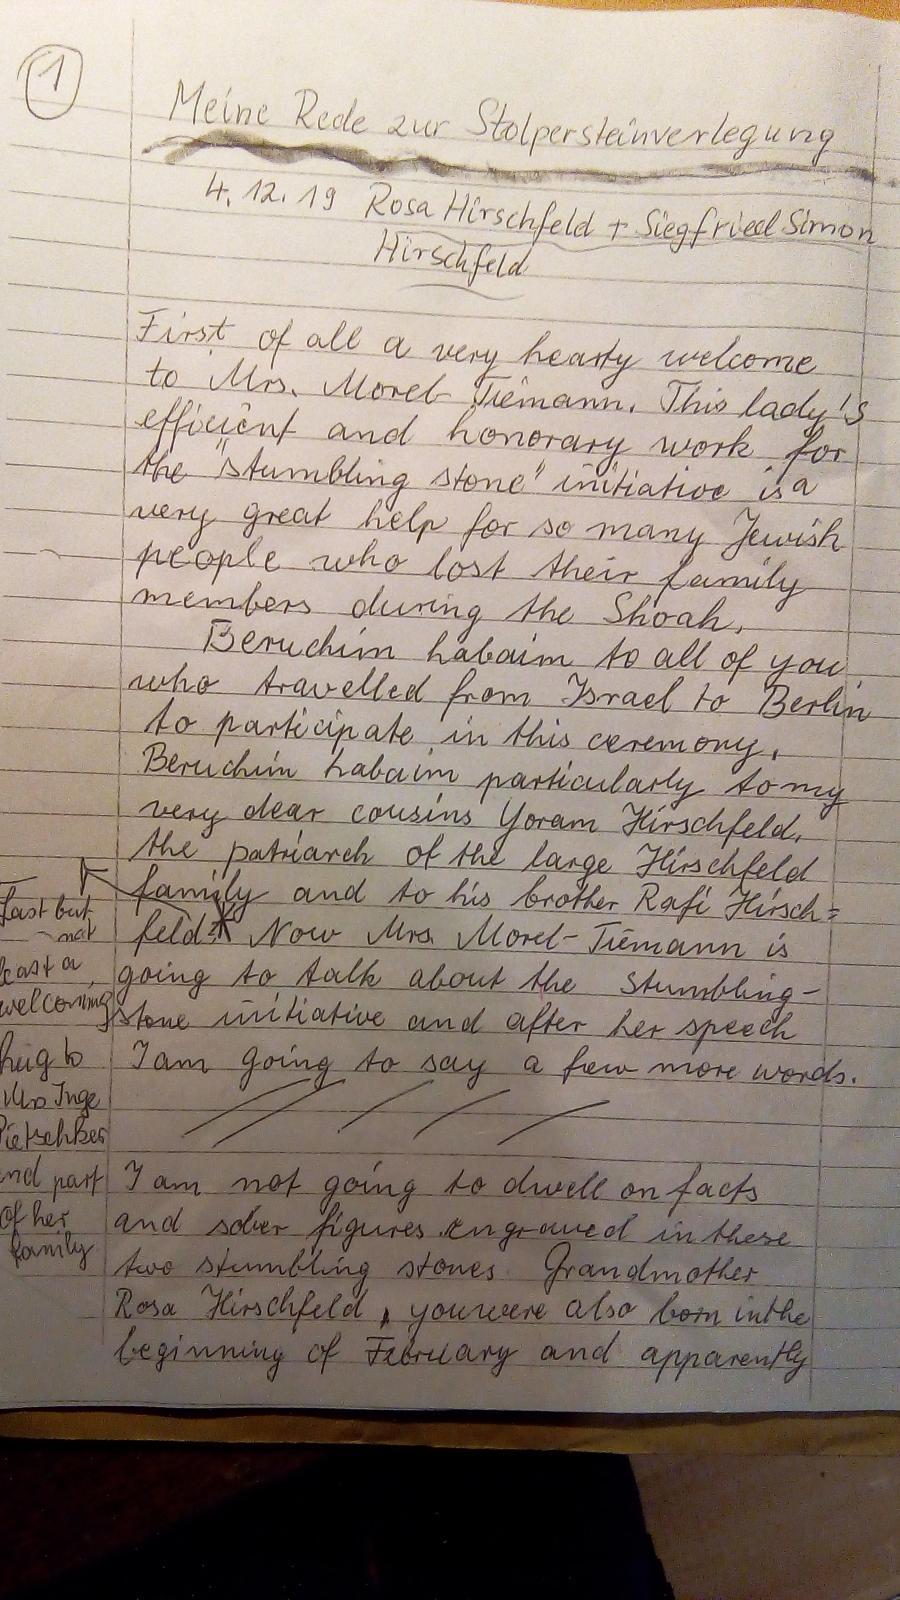 1
Meine Rede zur Stolpersteinverlegung
4.12.19 Rosa Hirschfeld + Siegfried Simon
Hirschfeld
First of all a very hearty welcome
to Mrs. Morel-Tiemann. This lady's
efficient and honorary work for
the "stumbling stone" initiative is a
very great help for so many Jewish
people who lost their family
members during the Shoah.
Beruchim habaim to all of you
who travelled from Israel to Berlin
to participate in this ceremony.
Beruchim habaim particularly to my
very dear cousins Yoram Hirschfeld,
the patriarch of the large Hirschfeld
family and to his brother Rafi Hirsch=
feld.* Now Mrs. Morel-Tiemann is
going to talk about the stumbling-
stone initiative and after her speech
I am going to say a few more words.
Last but
not
least a
welcoming
hug to
Mrs Inge
Pietschker
and part
of her
family
I am not going to dwell on facts
and sober figures engraved in these
two stumbling stones. Grandmother
Rosa Hirschfeld, you were also born in the
beginning of February and apparently